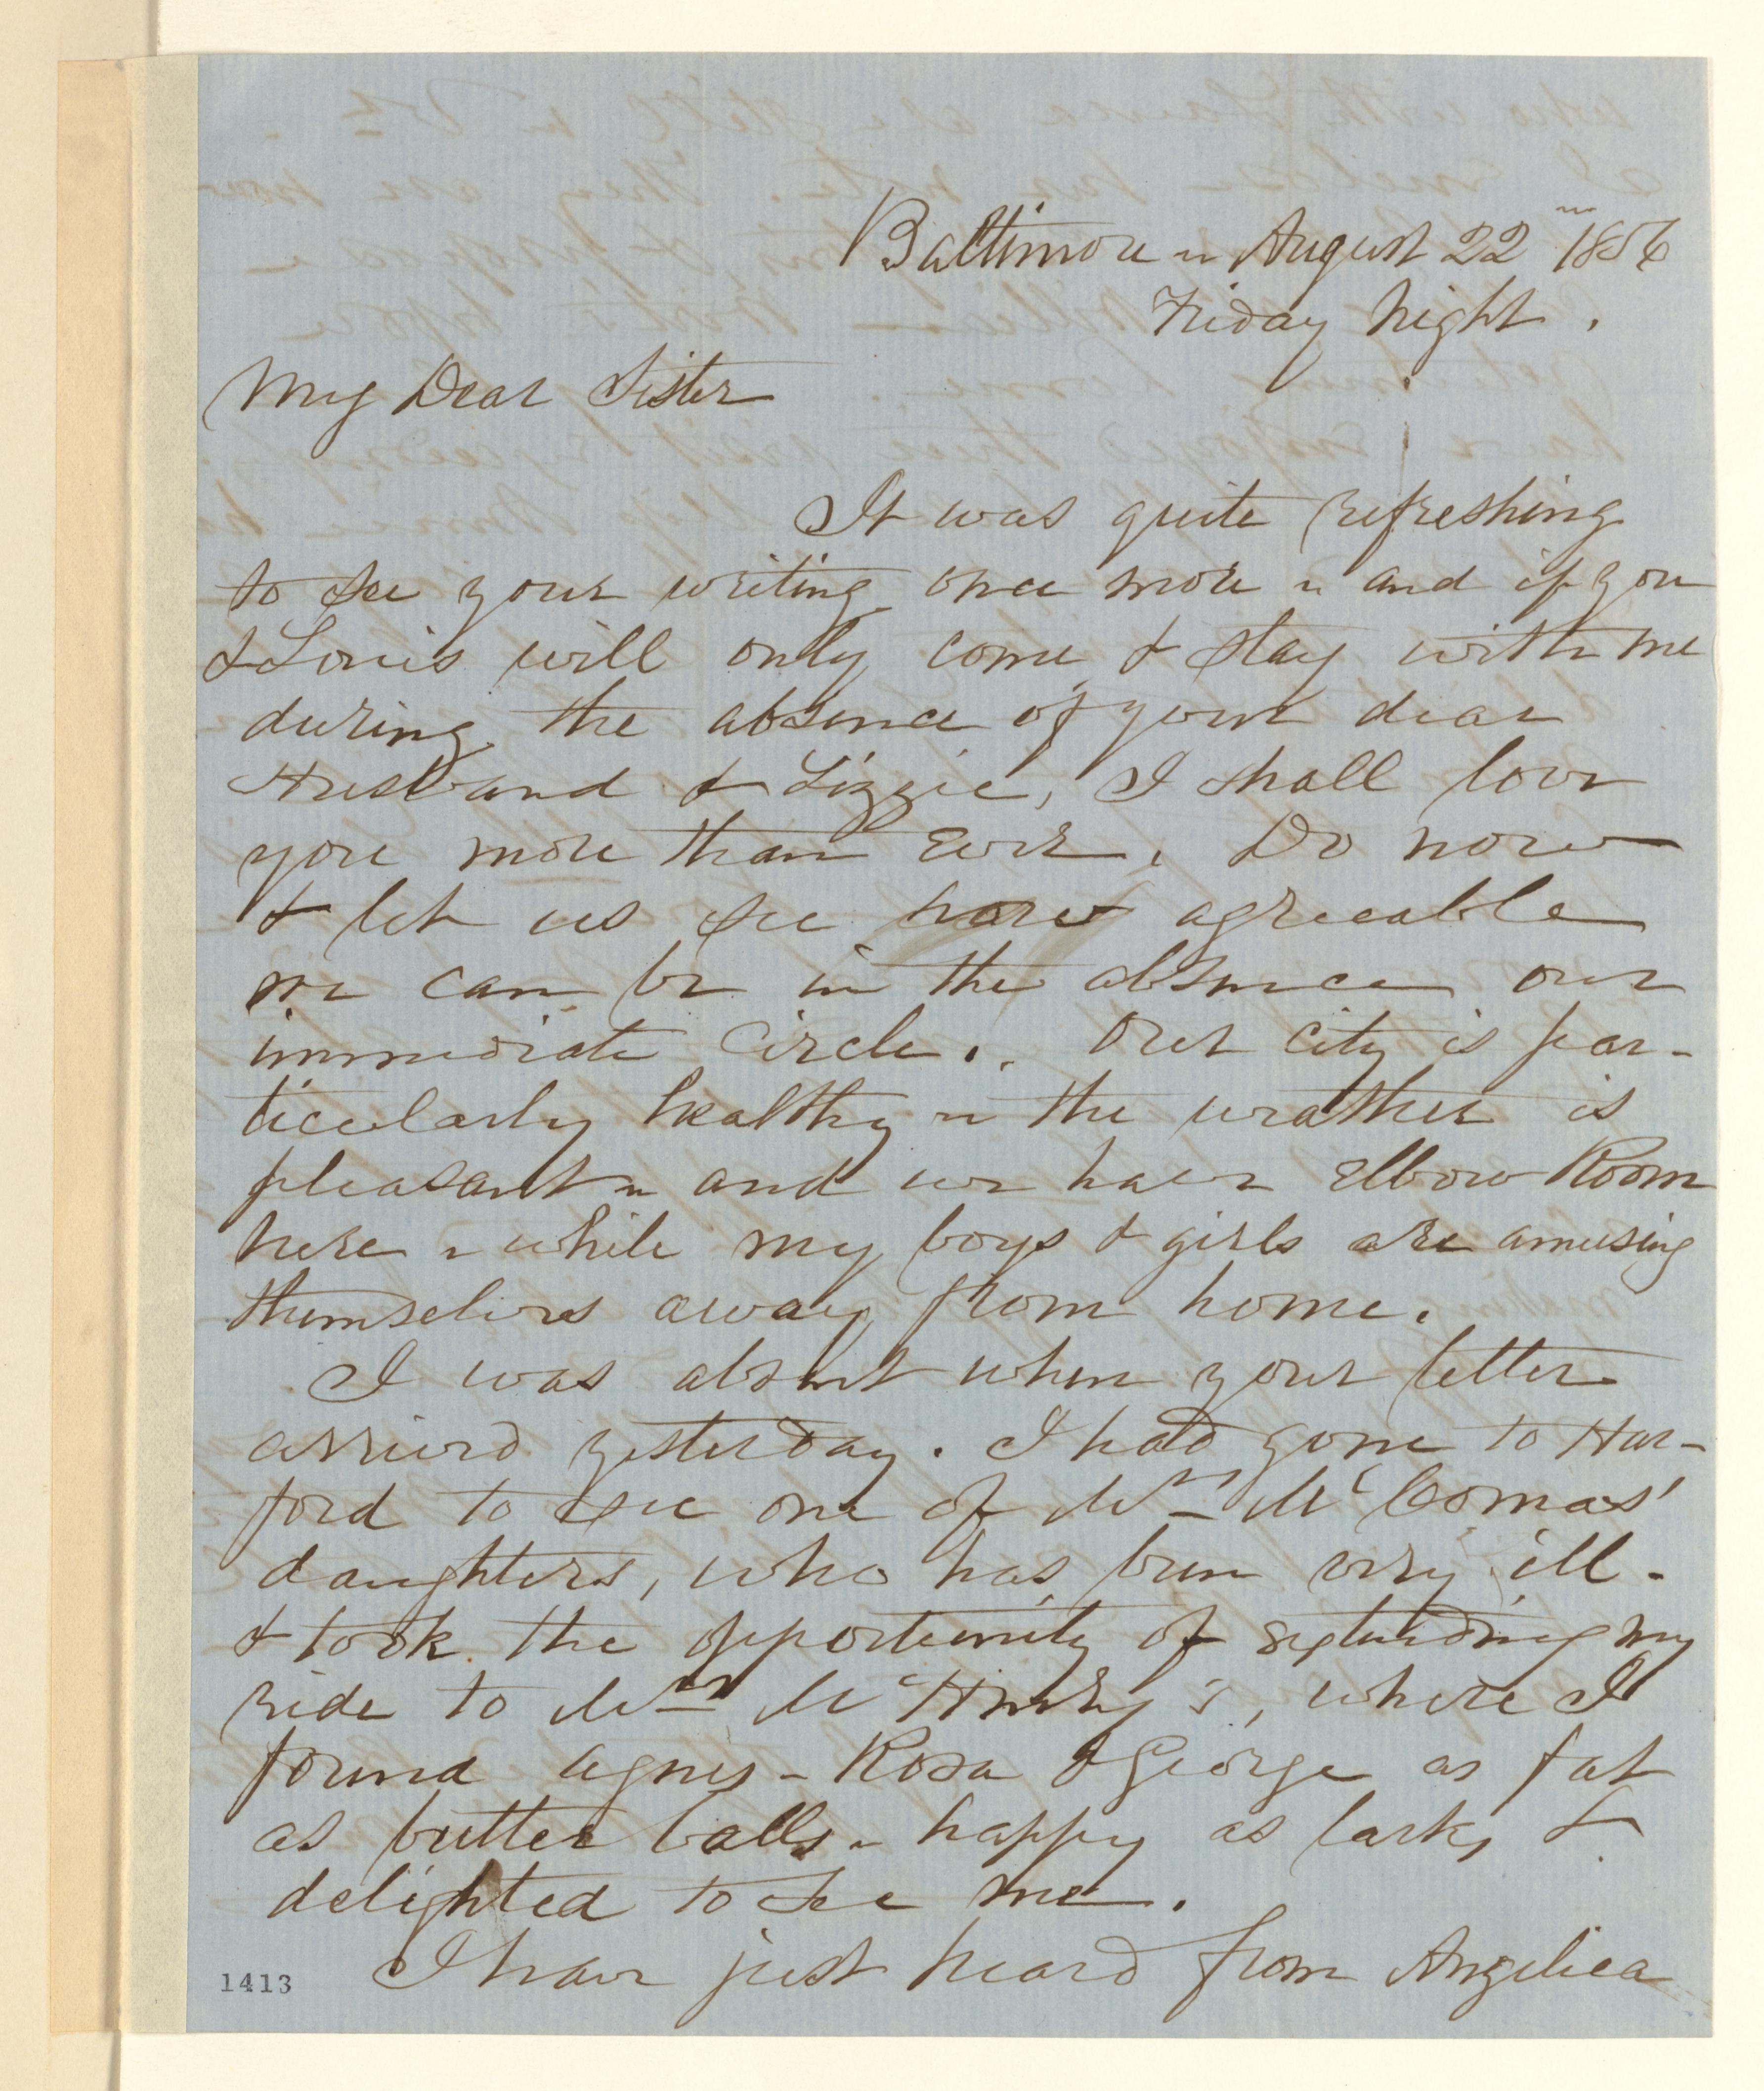 Baltimore ~ August 22nd 1856
Friday Night.
My Dear Sister
It was quite refreshing
to see your writing once more ~ and if you
& Louis will only come & stay with me
during the absence of your dear
Husband & Lizzie, I shall love
you more than ever. Do now
& let us see how agreeable
we can be in the absence our
immediate circle. Our city is par-
ticularly healthy ~ the weather is
pleasant ~ and we have Elbow Room
here ~ while my boys & girls are amusing
themselves away from home.
I was absent when your letter
arrived yesterday. I had gone to Har-
ford to see one of Mrs McComas'
daughters, who has been very ill -
& took the opportunity of extending my
ride to Mrs McHenry's, where I
found Agnes - Rosa & George as fat
as butter balls ~ happy as larks &
delighted to see me.
I have just heard from Angelica
1413